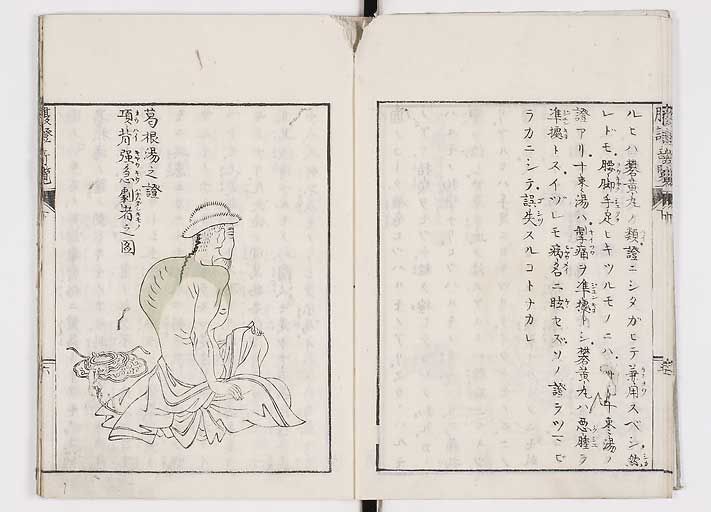 ルヒハ礬黄丸ノ類證ニシタガヒテ兼用スベシ然
レドモ腰脚手足ヒキツルモノニハ十棗湯ノ
證アリ十棗湯ハ掣痛ヲ準據トシ礬黄丸ハ悪腫ヲ
準據トスイツレモ病名ニ眩セズソノ證ヲツマビ
ラカニシテ誤失スルコトナカレ
葛根湯之證
項背强急劇者之圖
腹證奇覽